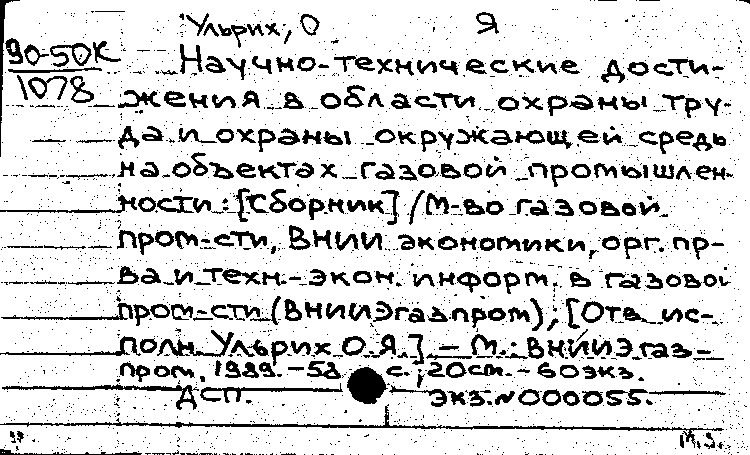 Ульрих, О Я
90-50К
1078
Научно-технические дости-
жения в области охраны тру-
да и охраны окружающей среды
на объектах газовой промышлен-
ности: [Сборник] / М-во газовой
пром-сти, ВНИИ экономики, орг. пр-
ва и техн.-экон. информ. в газовой
пром-сти (ВНИИЭгазпром); [Отв. ис-
полн. Ульрих О.Я.]. - М.: ВНИИЭгаз-
пром, 1989. - 53 с.; 20см. - 60экз.
ДСП. экз.№000055.